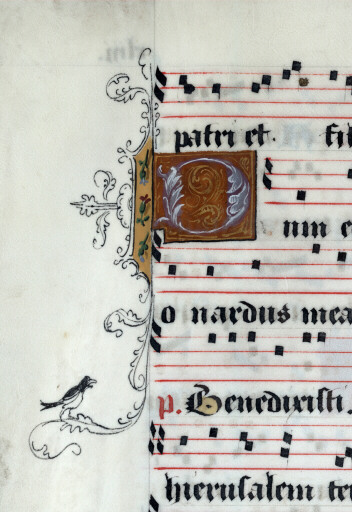 patri et. fili
D um e
o nardus mea
p. Benedixisti.
hierusalem te